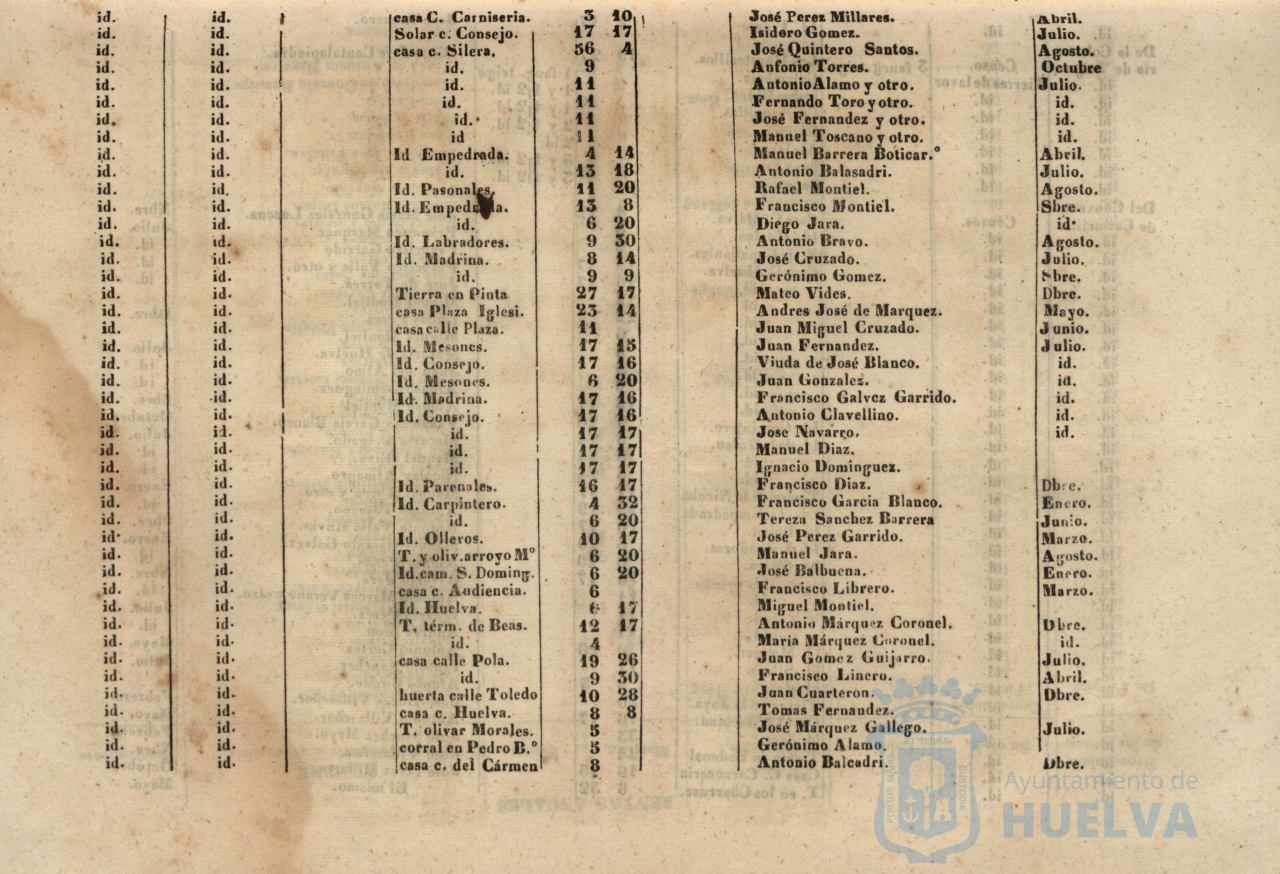 id. id. casa C. Carniseria. 3 10 José Perez Millares. Abril.
id. id. Solar c. Consejo. 17 17 Isidoro Gomez. Julio.
id. id. casa c. Silera. 56 4 José Quintero Santos. Agosto.
id. id. id. 9 Antonio Torres. Octubre
id. id. id. 11 Antonio Alamo y otro. Julio.
id. id. id. 11 Fernando Toro y otro. id.
id. id. id. 11 José Fernandez y otro. id.
id. id. id 11 Manuel Toscano y otro. id.
id. id. Id Empedrada. 4 14 Manuel Barrera Boticar.º Abril.
id. id. id. 13 18 Antonio Balasadri. Julio.
id. id. Id. Pasonales. 11 20 Rafael Montiel. Agosto.
id. id. Id. Empedrada. 13 8 Francisco Montiel. Sbre.
id. id. id. 6 20 Diego Jara. id.
id. id. Id. Labradores. 9 30 Antonio Bravo. Agosto.
id. id. Id. Madrina. 8 14 José Cruzado. Julio.
id. id. id. 9 9 Gerónimo Gomez. Sbre.
id. id. Tierra en Pinta 27 17 Mateo Vides. Dbre.
id. id. casa Plaza Iglesi. 23 14 Andres José de Marquez. Mayo.
id. id. casa calle Plaza. 11 Juan Miguel Cruzado. Junio.
id. id. Id. Mesones. 17 15 Juan Fernandez. Julio.
id. id. Id. Consejo. 17 16 Viuda de José Blanco. id.
id. id. Id. Mesones. 6 20 Juan Gonzalez. id.
id. id. Id. Madrina. 17 16 Francisco Galvez Garrido. id.
id. id. Id. Consejo. 17 16 Antonio Clavellino. id.
id. id. id. 17 17 Jose Navarro. id.
id. id. id. 17 17 Manuel Diaz.
id. id. id. 17 17 Ignacio Dominguez.
id. id. Id. Parenales. 16 17 Francisco Diaz. Dbre.
id. id. Id. Carpintero. 4 32 Francisco Garcia Blanco. Enero.
id. id. id. 6 20 Tereza Sanchez Barrera Junio.
id. id. Id. Olleros. 10 17 José Perez Garrido. Marzo.
id. id. T. y oliv. arroyo Mº 6 20 Manuel Jara. Agosto.
id. id. Id. cam. S. Doming. 6 20 José Balbuena. Enero.
id. id. casa c. Audiencia. 6 Francisco Librero. Marzo.
id. id. Id. Huelva. 6 17 Miguel Montiel.
id. id. T. térm. de Beas. 12 17 Antonio Márquez Coronel. Dbre.
id. id. id. 4 María Márquez Coronel. id.
id. id. casa calle Pola. 19 26 Juan Gomez Guijarro. Julio.
id. id. id. 9 30 Francisco Linero. Abril.
id. id. huerta calle Toledo 10 28 Juan Cuarteron. Dbre.
id. id. casa c. Huelva. 8 8 Tomas Fernandez.
id. id. T. olivar Morales. 5 José Márquez Gallego. Julio.
id. id. corral en Pedro B.º 5 Gerónimo Alamo.
id. id. casa c. del Cármen 8 Antonio Balcadri. Dbre.
Ayuntamiento de
HUELVA